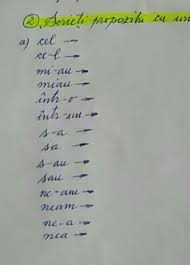 ② Scrieți propoziții cu
a) cel →
ce-l →
mi-au →
miau →
într-o →
într-un →
s-a →
sa →
s-au →
sau →
ne-am →
neam →
ne-a →
nea →